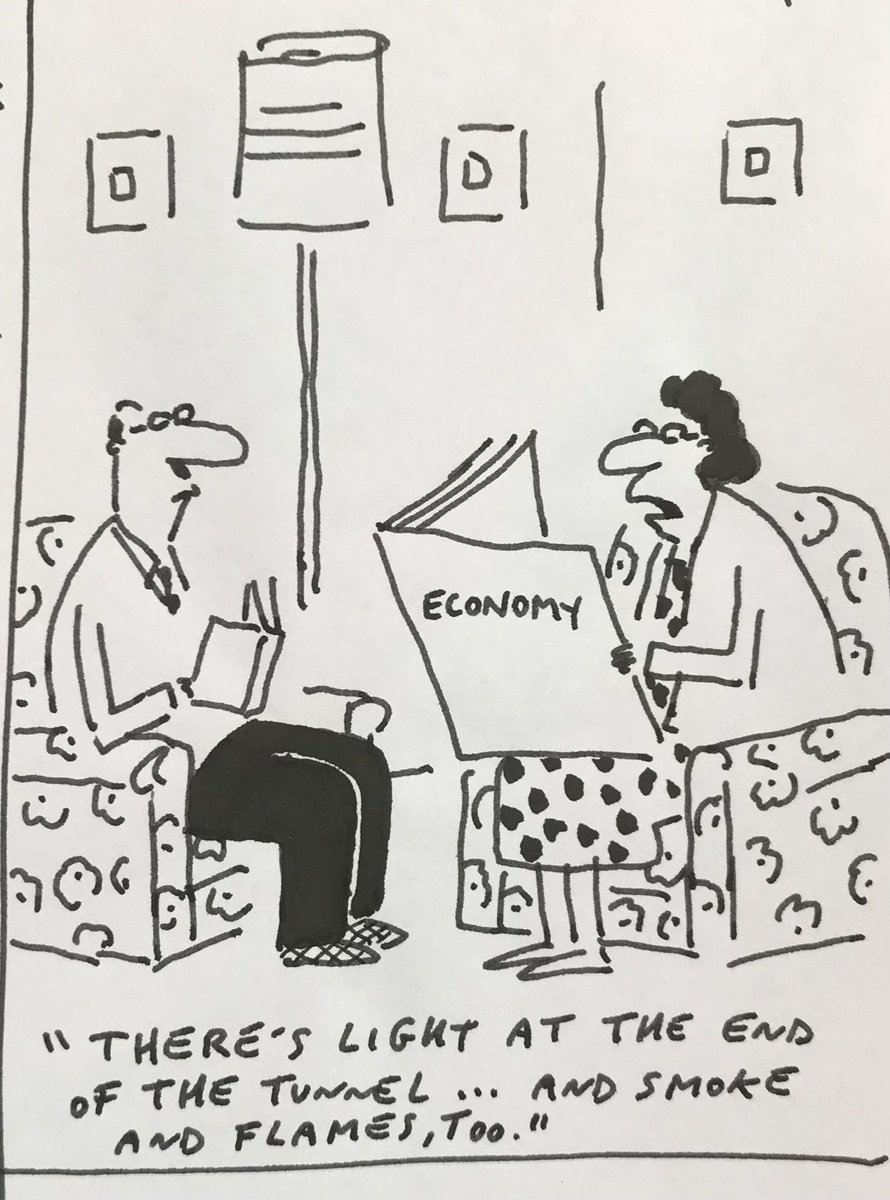 ECONOMY
"THERE'S LIGHT AT THE END
OF THE TUNNEL ... AND SMOKE
AND FLAMES, TOO."